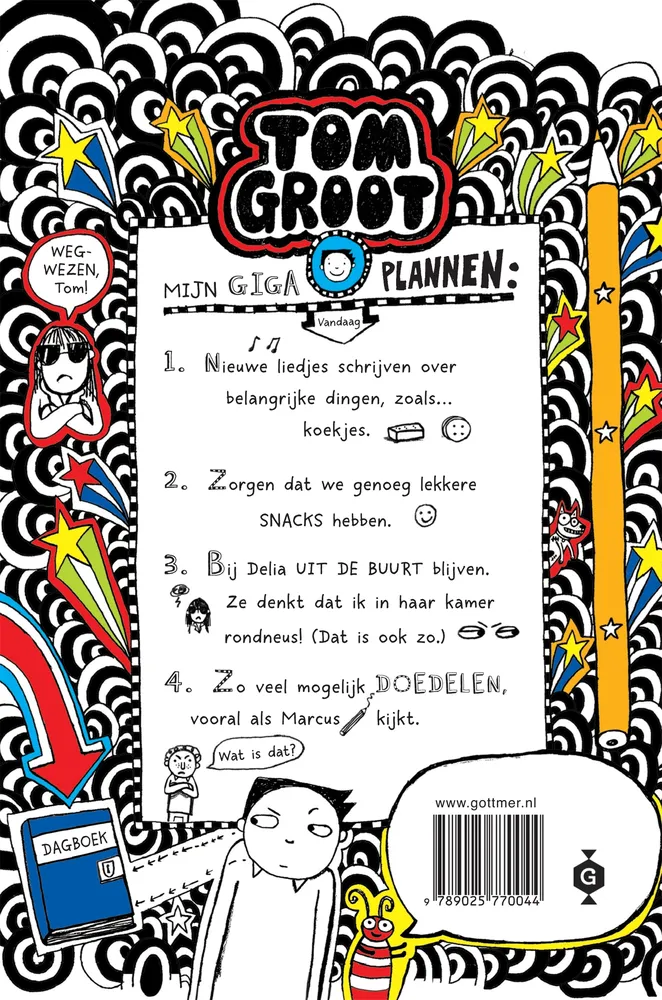 TOM
GROOT
MIJN GIGA PLANNEN:
Vandaag
WEG-
WEZEN,
Tom!
1. Nieuwe liedjes schrijven over
belangrijke dingen, zoals...
koekjes.
2. Zorgen dat we genoeg lekkere
SNACKS hebben.
3. Bij Delia UIT DE BUURT blijven.
Ze denkt dat ik in haar kamer
rondneus! (Dat is ook zo.)
4. Zo veel mogelijk DOEDELEN,
vooral als Marcus kijkt.
Wat is dat?
DAGBOEK
www.gottmer.nl
9 789025 770044
G